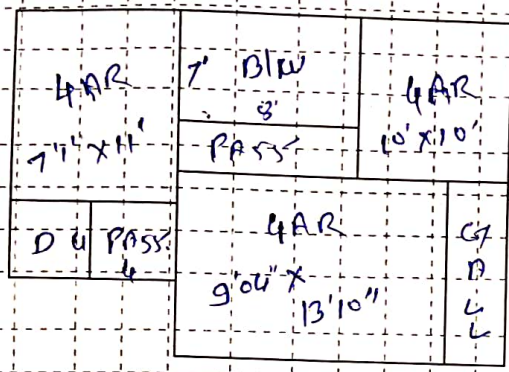 4AR
7'1" x 11'
7' B/W
8'
PASS
4AR
10' x 10'
D 4
PASS
4
4AR
9'04" x
13'10"
GALL